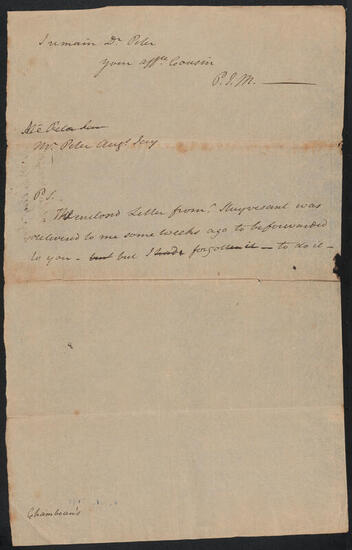 I remain Dr. Peter
your affte. Cousin
P. J. M.
Mr. Peter Augs. Jay
P. S.
The enclosed Letter from Stuyvesant was
delivered to me some weeks ago to be forwarded
to you - but but I had forgotten it - to do it -
Chambeau's